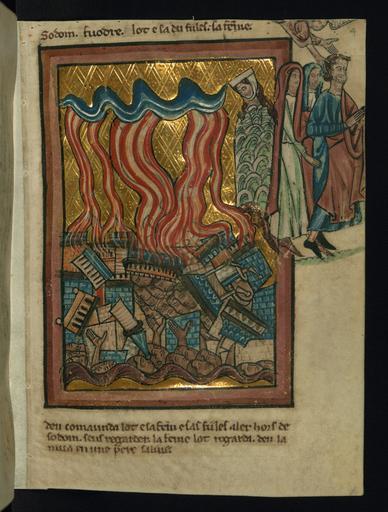 Sodom. fudre. lot e sa du fiiles. sa feme.
deu comaunda lot e sa feme e sas filles aler hors de
sodom. sens regarder. la feme lot regarda. deu la
mua en une pere